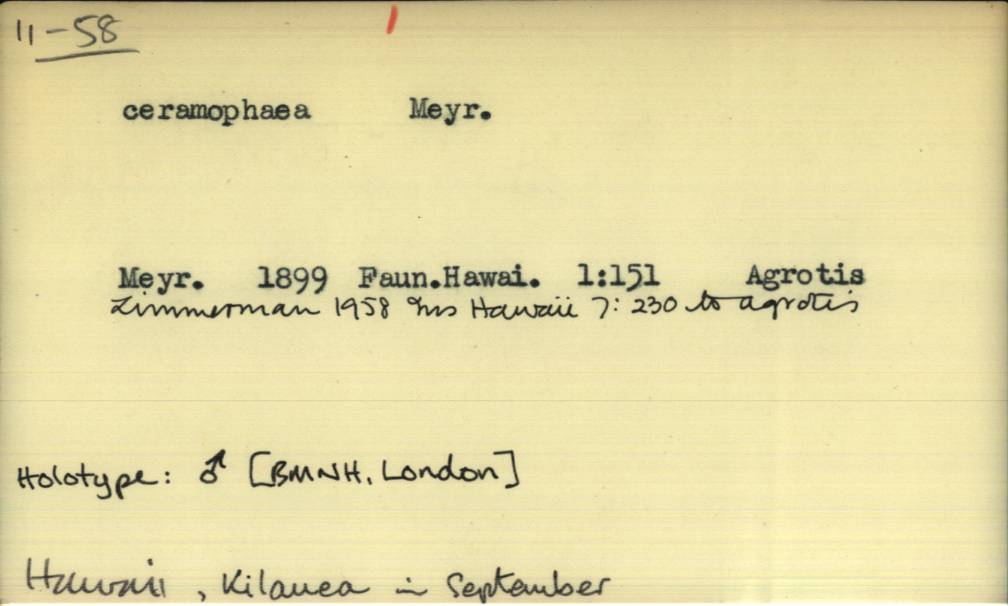 11-58
ceramophaea Meyr.
Meyr. 1899 Faun.Hawai. 1:151 Agrotis
Zimmerman 1958 Ins Hawaii 7: 230 to agrotis
Holotype: ♂ [BMNH, London]
Hawaii, Kilauea in September